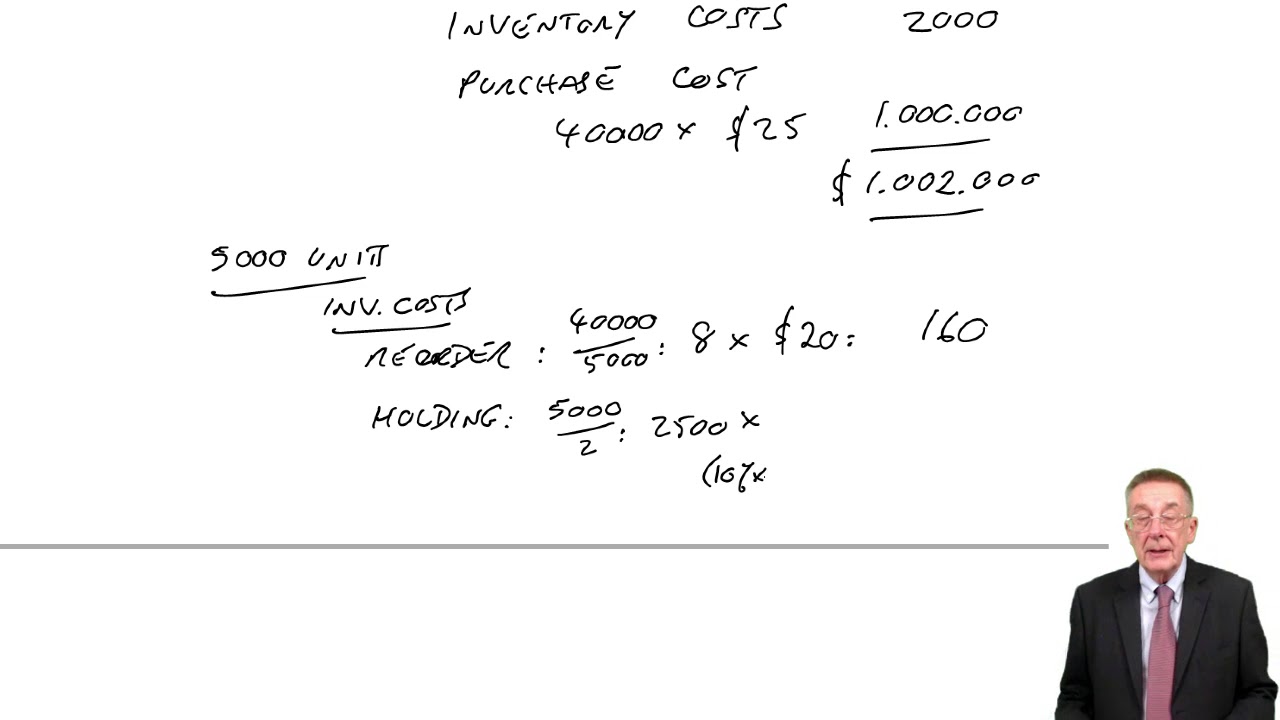 INVENTORY COSTS 2000
PURCHASE COST
40000 x $25 1.000.000
$ 1.002.000
5000 UNIT
INV. COSTS
REORDER : 40000/5000 : 8 x $20 : 160
HOLDING : 5000/2 : 2500 x
(10% x